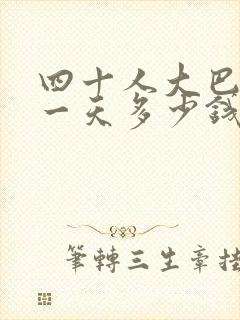 四十人大巴
一天多少錢
筆轉三生章挂